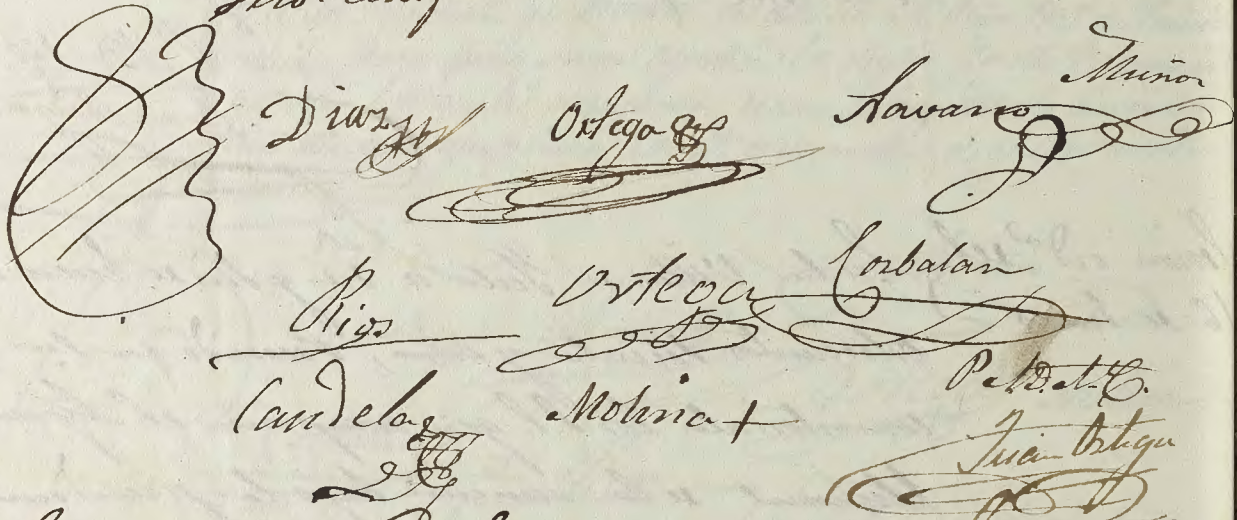 Diaz Ortega Navarro Muñoz
Rios Ortega Corbalan
Candela Molina
P. A. D. A. C.
Juan Ortega